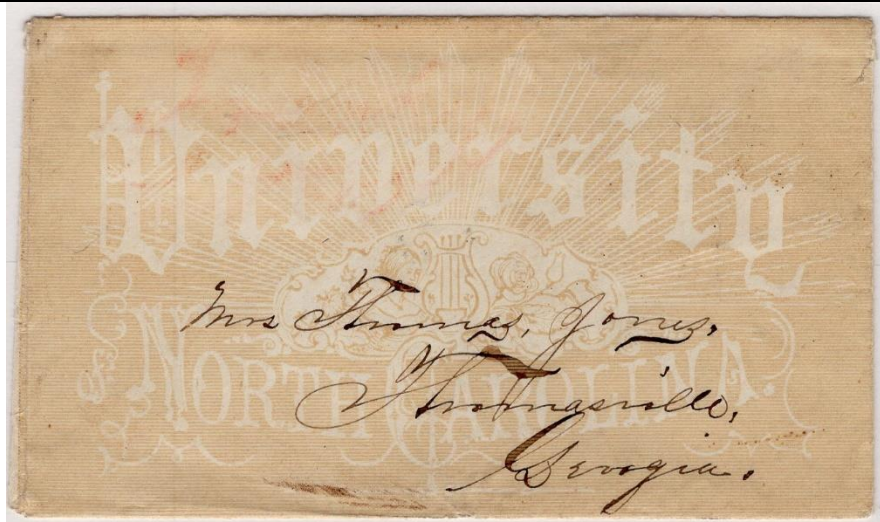 University
NORTH CAROLINA.
Mrs Thomas, Jones,
Thomasville,
Georgia.